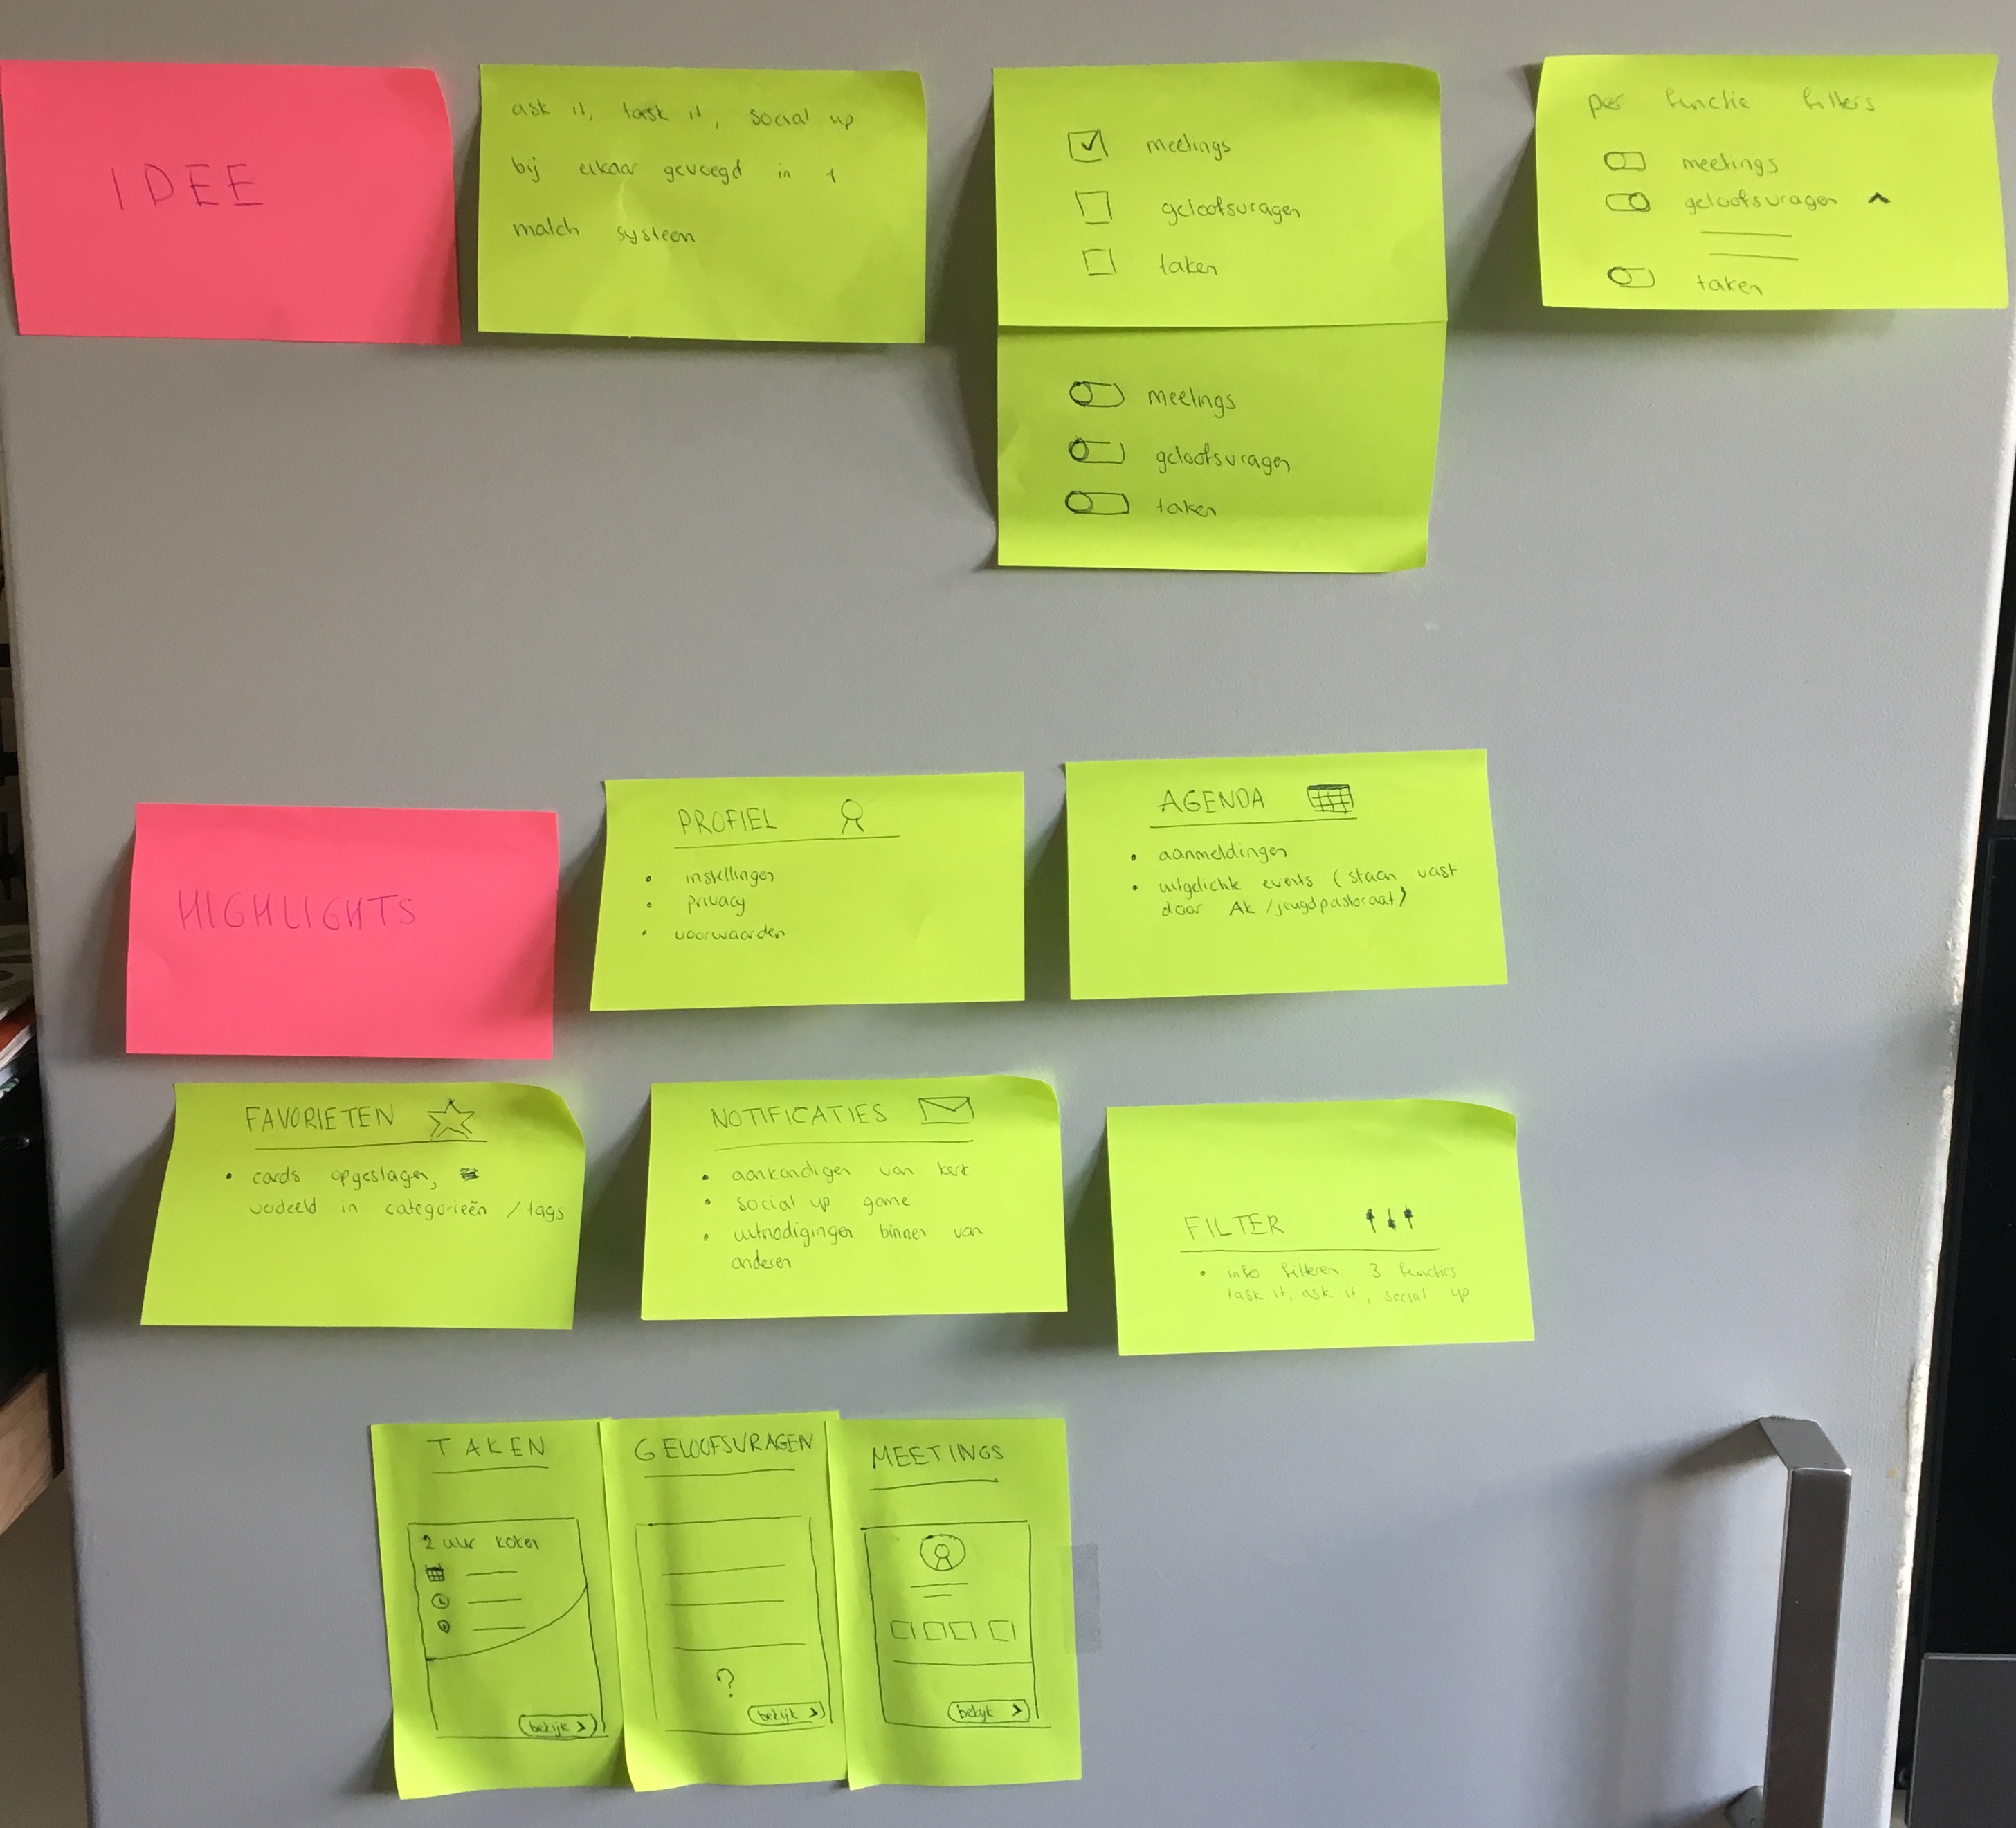 IDEE
ask it, task it, social up
bij elkaar gevoegd in 1
match systeem
meetings
geloofsvragen
taken
meetings
geloofsvragen
taken
per functie filters
meetings
geloofsvragen
taken
HIGHLIGHTS
PROFIEL
• instellingen
• privacy
• voorwaarden
AGENDA
• aanmeldingen
• uitgelichte events (staan vast
door AK/jeugdpastoraat)
FAVORIETEN
• cards opgeslagen,
verdeeld in categorieën / tags
NOTIFICATIES
• aankondigen van kerk
• social up game
• uitnodigingen binnen van
anderen
FILTER
• info filteren 3 functies
task it, ask it, social up
TAKEN
2 uur koken
bekijk >
GELOOFSVRAGEN
?
bekijk >
MEETINGS
bekijk >